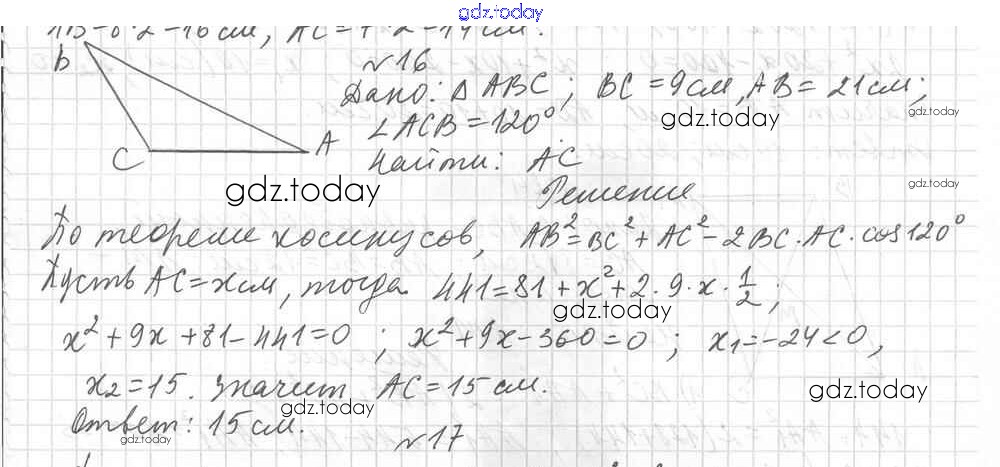 gdz.today
AB=8·2=16см, AC=7·2=14см.
№16
B
Дано: Δ ABC; BC=9см, AB=21см;
gdz.today gdz.today
∠ACB=120°.
C A
Найти: AC
gdz.today gdz.today
Решение
По теореме косинусов, AB²=BC²+AC²-2BC·AC·cos120°
Пусть AC=xсм, тогда 441=81+x²+2·9·x·1/2;
gdz.today
x²+9x+81-441=0; x²+9x-360=0; x₁=-24<0,
x₂=15. Значит AC=15см.
gdz.today gdz.today
Ответ: 15см.
gdz.today
№17